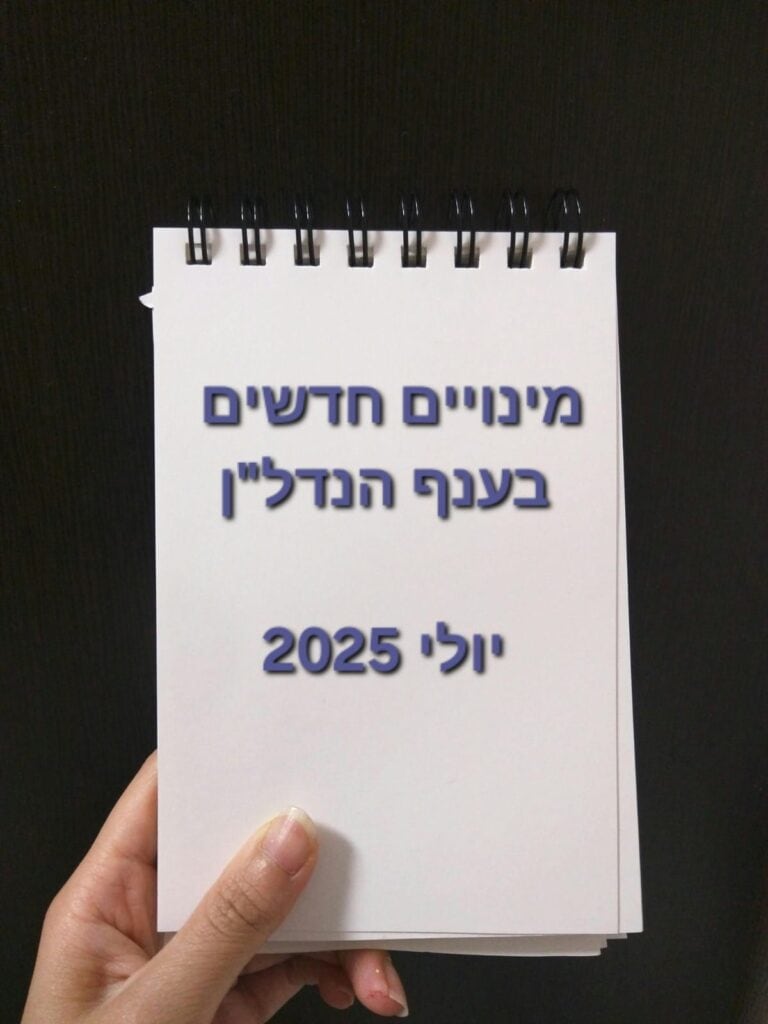 מינויים חדשים
בענף הנדל"ן
יולי 2025